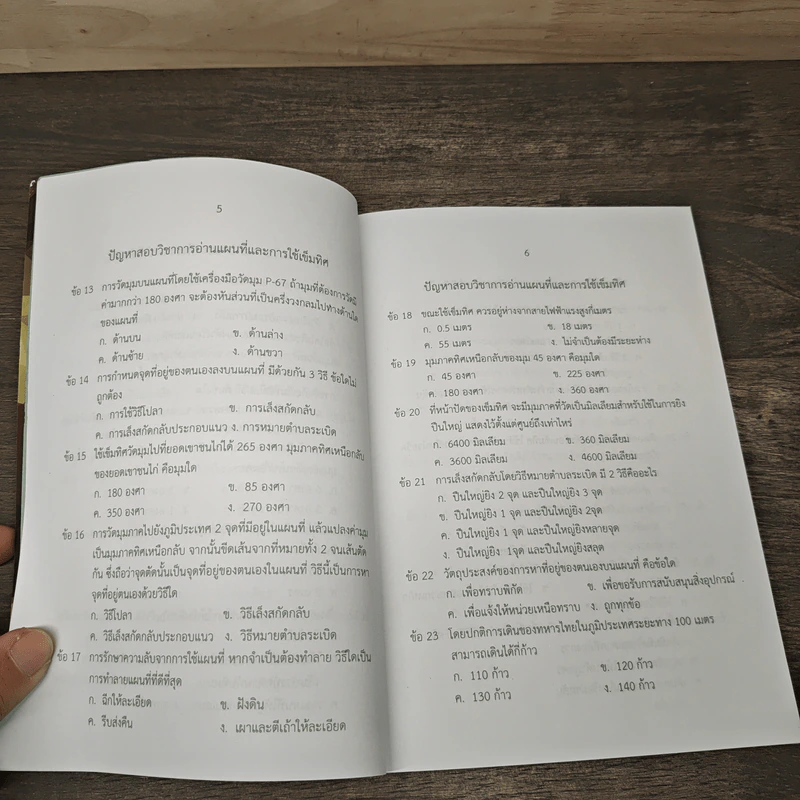 5
ปัญหาสอบวิชาการอ่านแผนที่และการใช้เข็มทิศ
ข้อ 13 การวัดมุมบนแผนที่โดยใช้เครื่องมือวัดมุม P-67 ถ้ามุมที่ต้องการวัดมี
ค่ามากกว่า 180 องศา จะต้องหันส่วนที่เป็นครึ่งวงกลมไปทางด้านใด
ของแผนที่
ก. ด้านบน ข. ด้านล่าง
ค. ด้านซ้าย ง. ด้านขวา
ข้อ 14 การกำหนดจุดที่อยู่ของตนเองลงบนแผนที่ มีด้วยกัน 3 วิธี ข้อใดไม่
ถูกต้อง
ก. การใช้วิธีโปลา ข. การเล็งสกัดกลับ
ค. การเล็งสกัดกลับประกอบแนว ง. การหมายตำบลระเบิด
ข้อ 15 ใช้เข็มทิศวัดมุมไปที่ยอดเขาชนไก่ได้ 265 องศา มุมภาคทิศเหนือกลับ
ของยอดเขาชนไก่ คือมุมใด
ก. 180 องศา ข. 85 องศา
ค. 350 องศา ง. 270 องศา
ข้อ 16 การวัดมุมภาคไปยังภูมิประเทศ 2 จุดที่มีอยู่ในแผนที่ แล้วแปลงค่ามุม
เป็นมุมภาคทิศเหนือกลับ จากนั้นขีดเส้นจากที่หมายทั้ง 2 จนเส้นตัด
กัน ซึ่งถือว่าจุดตัดนั้นเป็นจุดที่อยู่ของตนเองในแผนที่ วิธีนี้เป็นการหา
จุดที่อยู่ตนเองด้วยวิธีใด
ก. วิธีโปลา ข. วิธีเล็งสกัดกลับ
ค. วิธีเล็งสกัดกลับประกอบแนว ง. วิธีหมายตำบลระเบิด
ข้อ 17 การรักษาความลับจากการใช้แผนที่ หากจำเป็นต้องทำลาย วิธีใดเป็น
การทำลายแผนที่ที่ดีที่สุด
ก. ฉีกให้ละเอียด ข. ฝังดิน
ค. รีบส่งคืน ง. เผาและตีเถ้าให้ละเอียด
6
ปัญหาสอบวิชาการอ่านแผนที่และการใช้เข็มทิศ
ข้อ 18 ขณะใช้เข็มทิศ ควรอยู่ห่างจากสายไฟฟ้าแรงสูงกี่เมตร
ก. 0.5 เมตร ข. 18 เมตร
ค. 55 เมตร ง. ไม่จำเป็นต้องมีระยะห่าง
ข้อ 19 มุมภาคทิศเหนือกลับของมุม 45 องศา คือมุมใด
ก. 45 องศา ข. 225 องศา
ค. 180 องศา ง. 360 องศา
ข้อ 20 ที่หน้าปัดของเข็มทิศ จะมีมุมภาคที่วัดเป็นมิลเลียมสำหรับใช้ในการยิง
ปืนใหญ่ แสดงไว้ตั้งแต่ศูนย์ถึงเท่าไหร่
ก. 6400 มิลเลียม ข. 360 มิลเลียม
ค. 3600 มิลเลียม ง. 4600 มิลเลียม
ข้อ 21 การเล็งสกัดกลับโดยวิธีหมายตำบลระเบิด มี 2 วิธีคืออะไร
ก. ปืนใหญ่ยิง 2 จุด และปืนใหญ่ยิง 3 จุด
ข. ปืนใหญ่ยิง 1 จุด และปืนใหญ่ยิง 2จุด
ค. ปืนใหญ่ยิง 1 จุด และปืนใหญ่ยิงหลายจุด
ง. ปืนใหญ่ยิง 1จุด และปืนใหญ่ยิงสลุต
ข้อ 22 วัตถุประสงค์ของการหาที่อยู่ของตนเองบนแผนที่ คือข้อใด
ก. เพื่อทราบพิกัด ข. เพื่อขอรับการสนับสนุนสิ่งอุปกรณ์
ค. เพื่อแจ้งให้หน่วยเหนือทราบ ง. ถูกทุกข้อ
ข้อ 23 โดยปกติการเดินของทหารไทยในภูมิประเทศระยะทาง 100 เมตร
สามารถเดินได้กี่ก้าว
ก. 110 ก้าว ข. 120 ก้าว
ค. 130 ก้าว ง. 140 ก้าว